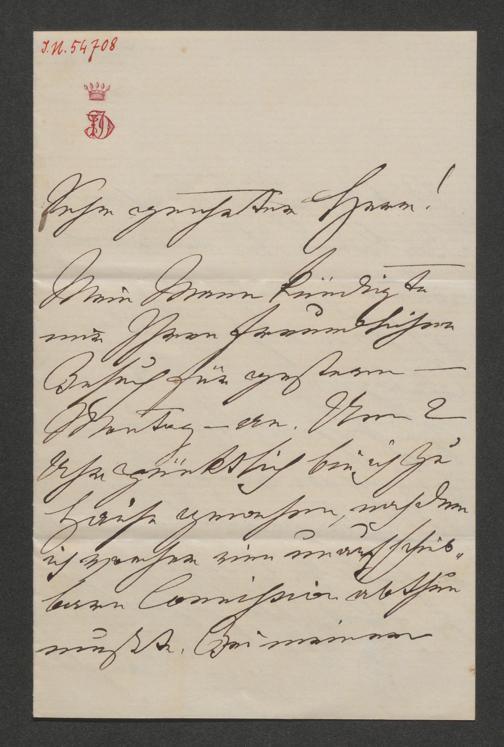 I.N. 54708
JD
Sehr geehrter Herr!
Mein Mann kündigte
mir Ihren freundlichen
Besuch für gestern —
Montag — an. Um 2
Uhr pünktlich bin ich zu
Hause gewesen, nachdem
ich vorher eine unaufschieb-
bare Comission abthun
mußte. Bei meiner